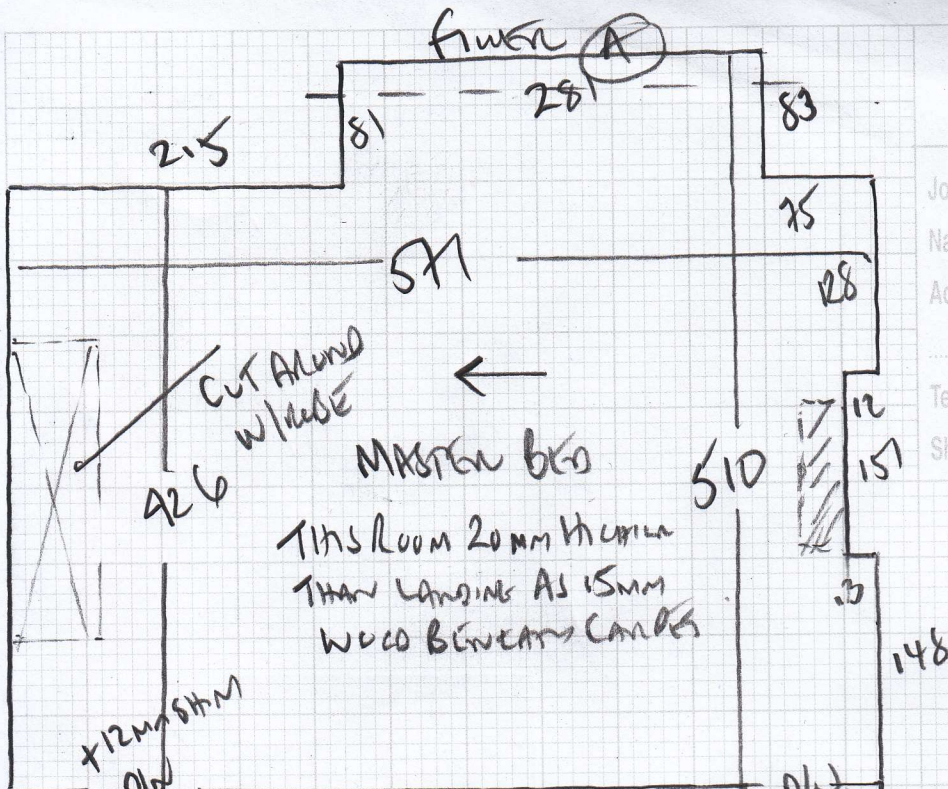 FILLER A
281
81
83
2.15
75
571
128
CUT AROUND
W/ROBE
12
MASTER BED
151
426
510
THIS ROOM 20MM HIGHER
THAN LANDING AS 15MM
WOOD BENEATH CARPET
.13
148
+12MM SHIM
Jo
Na
Ad
Te